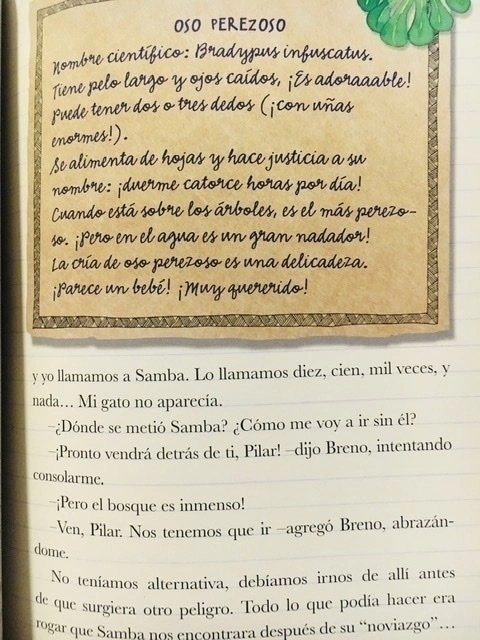 OSO PEREZOSO
Nombre científico: Bradypus infuscatus.
Tiene pelo largo y ojos caídos, ¡Es adoraaable!
Puede tener dos o tres dedos (¡con uñas
enormes!).
Se alimenta de hojas y hace justicia a su
nombre: ¡duerme catorce horas por día!
Cuando está sobre los árboles, es el más perezo-
so. ¡Pero en el agua es un gran nadador!
La cría de oso perezoso es una delicadeza.
¡Parece un bebé! ¡Muy quererido!
y yo llamamos a Samba. Lo llamamos diez, cien, mil veces, y
nada... Mi gato no aparecía.
–¿Dónde se metió Samba? ¿Cómo me voy a ir sin él?
–¡Pronto vendrá detrás de ti, Pilar! –dijo Breno, intentando
consolarme.
–¡Pero el bosque es inmenso!
–Ven, Pilar. Nos tenemos que ir –agregó Breno, abrazán-
dome.
No teníamos alternativa, debíamos irnos de allí antes
de que surgiera otro peligro. Todo lo que podía hacer era
rogar que Samba nos encontrara después de su “noviazgo”...